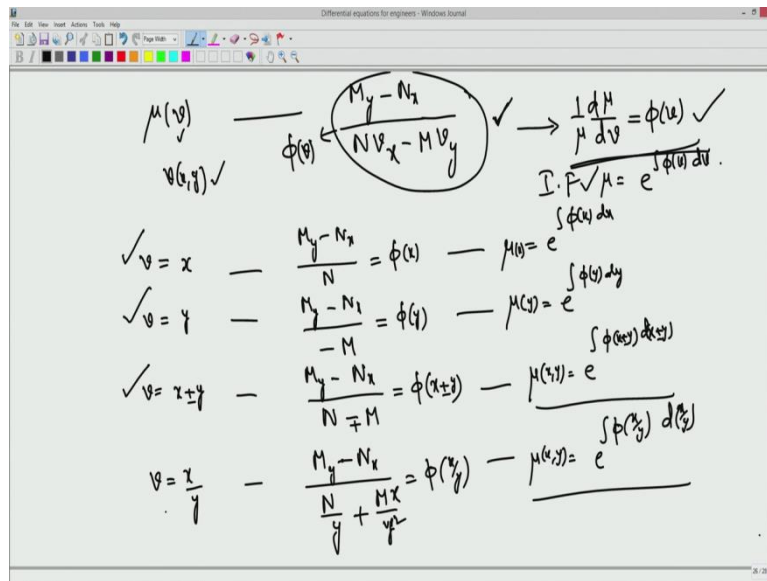 Differential equations for engineers - Windows Journal
File Edit View Insert Actions Tools Help
Page Width
B I
μ(v) — (M_y - N_x)/(N v_x - M v_y) ✓ → 1/μ dμ/dv = φ(v) ✓
v(x,y) ✓ φ(v) ←
I.F ✓ μ = e^{∫φ(v) dv}.
✓ v = x — (M_y - N_x)/N = φ(x) — μ(x) = e^{∫φ(x) dx}
✓ v = y — (M_y - N_x)/(-M) = φ(y) — μ(y) = e^{∫φ(y) dy}
✓ v = x±y — (M_y - N_x)/(N ∓ M) = φ(x±y) — μ(x,y) = e^{∫φ(x±y) d(x±y)}
v = x/y — (M_y - N_x)/(N/y + Mx/y²) = φ(x/y) — μ(x,y) = e^{∫φ(x/y) d(x/y)}
28 / 28